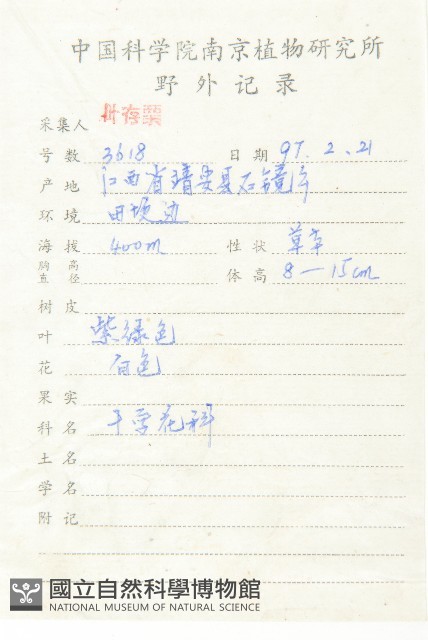 中国科学院南京植物研究所
野外记录
采集人 叶存粟
号数 3618 日期 97.2.21
产地 江西省靖安县石镜
环境 田埂边
海拔 400m 性状 草本
胸高直径 体高 8—15cm
树皮
叶 紫绿色
花 白色
果实
科名 十字花科
土名
学名
附记
國立自然科學博物館
NATIONAL MUSEUM OF NATURAL SCIENCE